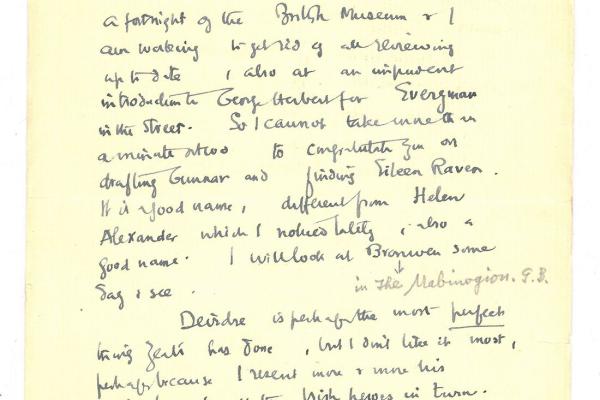 a fortnight of the British Museum & I
am working to get rid of all reviewing
up to date, also at an impudent
introduction to George Herbert for Everyman
in the street. So I cannot take more than
a minute or two to congratulate you on
drafting Gunnar and finding Eileen Raven.
It is a good name, different from Helen
Alexander which I noticed lately, also a
good name. I will look at Bronwen some
day & see.
in The Mabinogion. G.B.
Deirdre is perhaps the most perfect
thing Yeats has done, but I don't like it most,
perhaps because I resent more & more his
Irish heroes in turn.